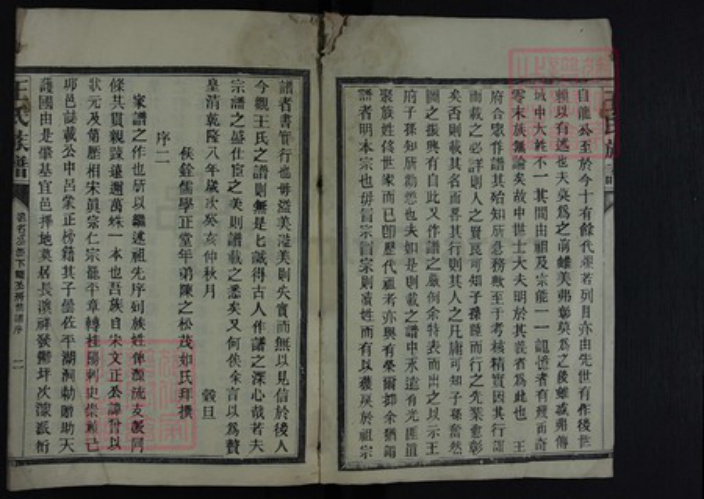 自龍公至於今十有餘代飛若列月亦由先世有作後世
賴以有述也夫莫為之前雖美弗彰莫為之後雖盛弗傳
城中大姓不一其間由祖及宗能一一記憶者有幾而奇
零末族無論矣故中世士大夫明於其義者為此也 王
府合眾作譜其始知所急務歟至于考核精實因其行誼
而載之必詳則人之賢良可知子孫踵而行之先業愈彰
矣否則載其名而畧其行則其人之凡庸可知子孫奮然
圖之振興有自此又作譜之嚴例余特表而出之以示王
府子孫知所勸懲也夫如是則載之譜中永遠有光匪直
聚族姓侈世家而已即歷代祖考亦與有榮爾抑余猶願
譜者明本宗也毋冒宗冒宗則瀆姓而有以獲戾於祖宗
王氏族譜
譜者書實行也毋溢美溢美則失實而無以見信於後人
今觀王氏之譜則無是七誠得古人作譜之深心哉若夫
宗譜之盛仕宦之美則譜載之悉矣又何俟余言以為贊
皇清乾隆八年歲次癸亥仲秋月 穀旦
侯銓儒學正堂年弟陳之松茂如氏拜撰
序二
家譜之作也所以繼述祖先序列族姓俾源流支派同
條共貫親疎遠邇萬殊一本也吾族自宋文正公諱付以
狀元及第歷相宋真宗仁宗罷平章轉桂陽刺史崇祿己
邪邑誌載公中呂蒙正榜籍其子疊佐平湖洞勅贈助天
護國由是肇基宜邑擇地莫居長濱祥發鬱坪次濠派衍
王氏族譜
序 二